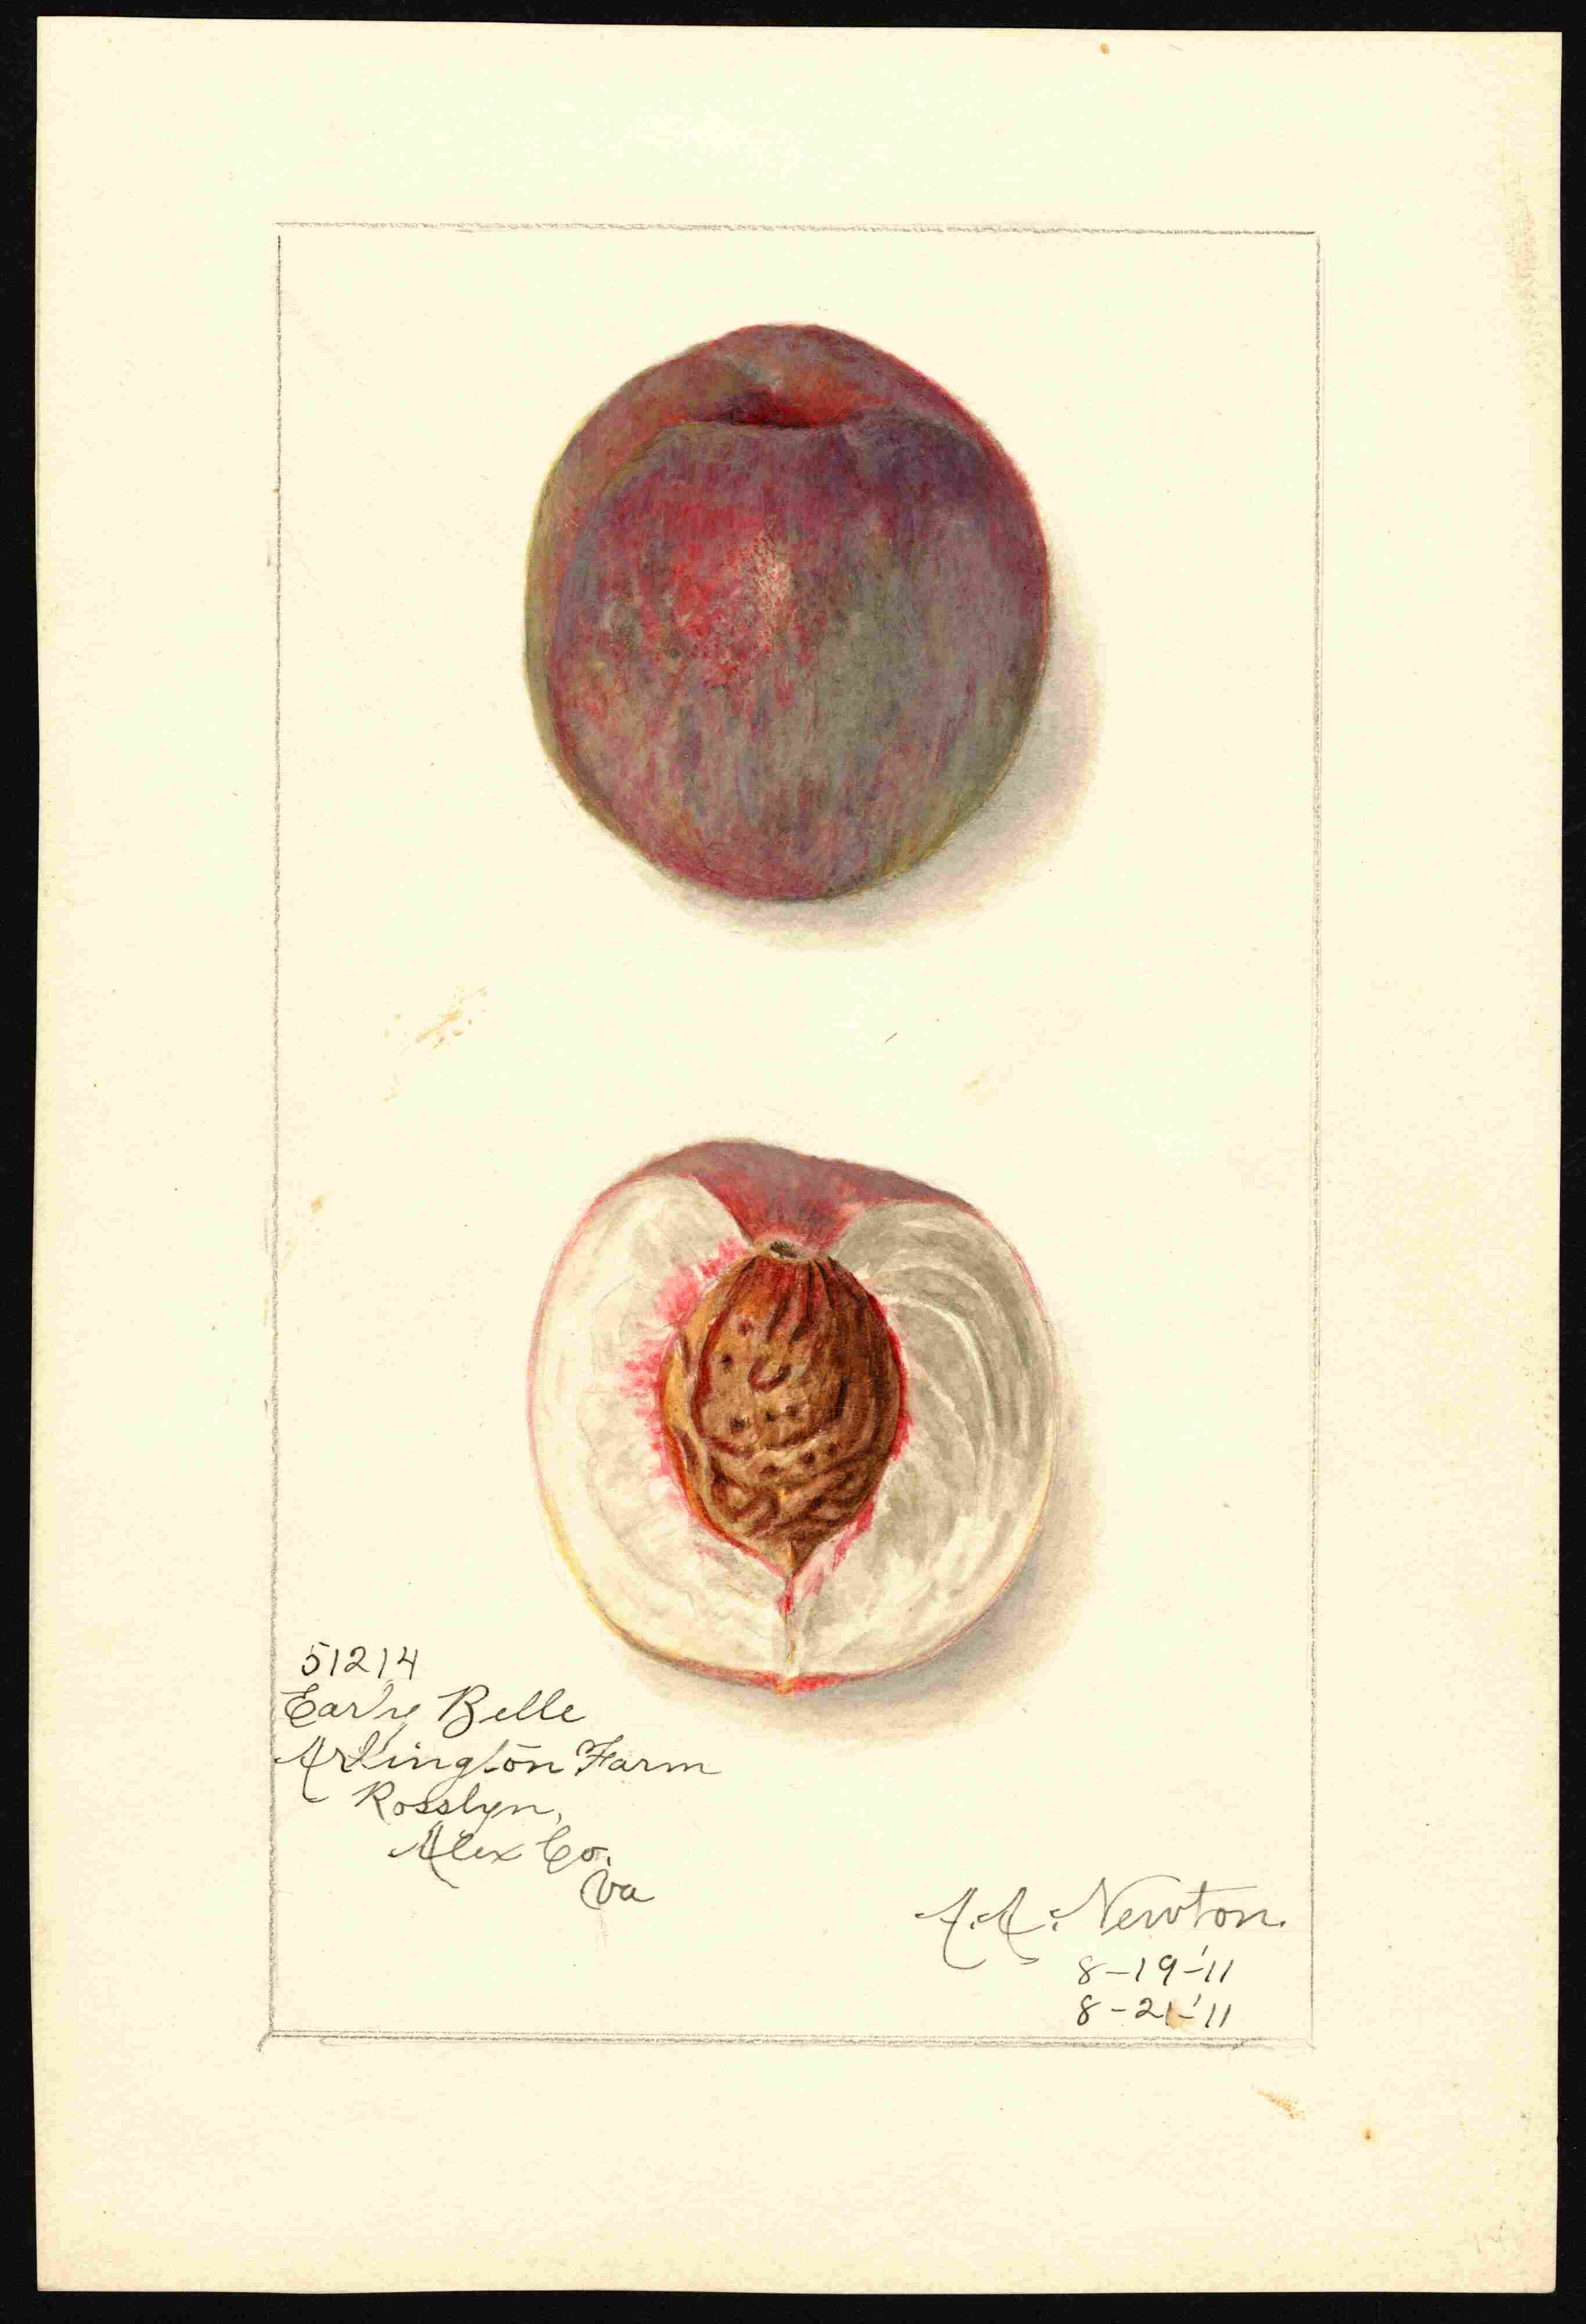 51214
Early Belle
Arlington Farm
Rosslyn,
Alex Co.
Va
A. A. Newton.
8-19-'11
8-21-'11